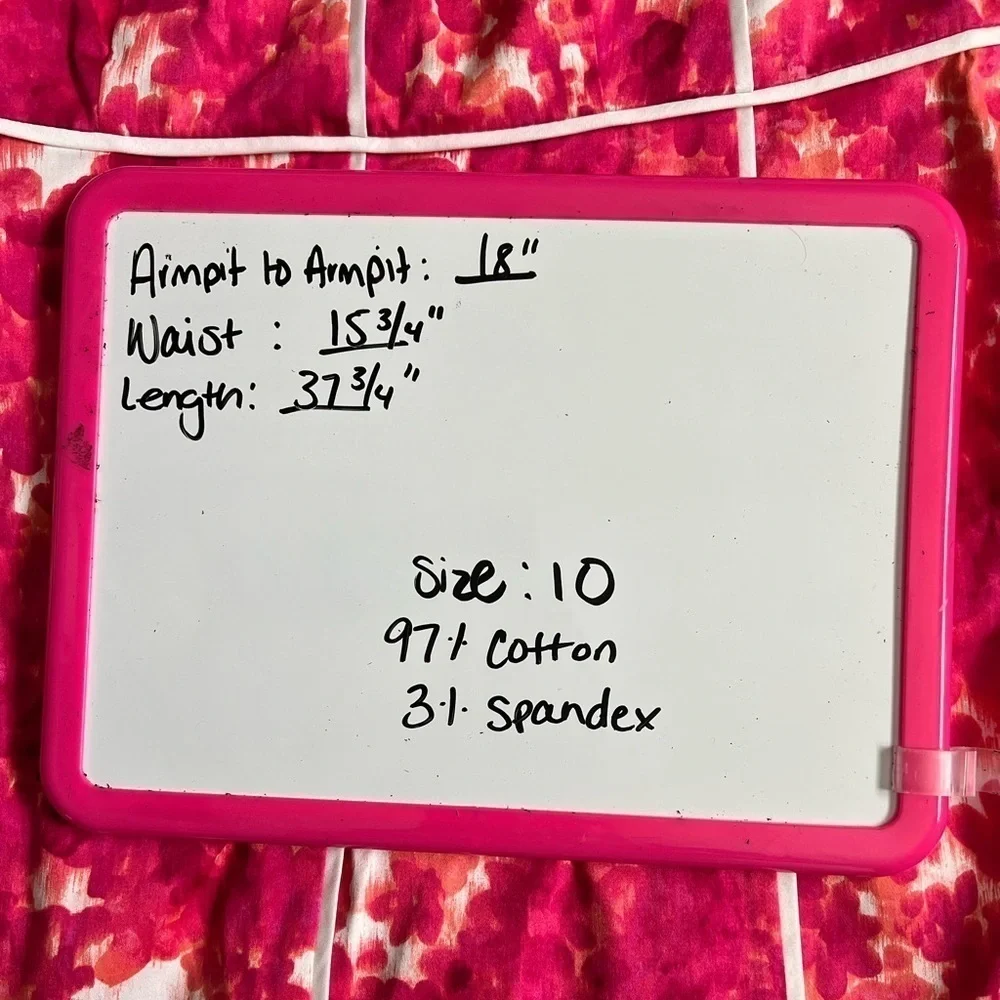 Armpit to Armpit: 18"
Waist : 15 3/4"
Length: 37 3/4"
Size: 10
97% Cotton
3% Spandex